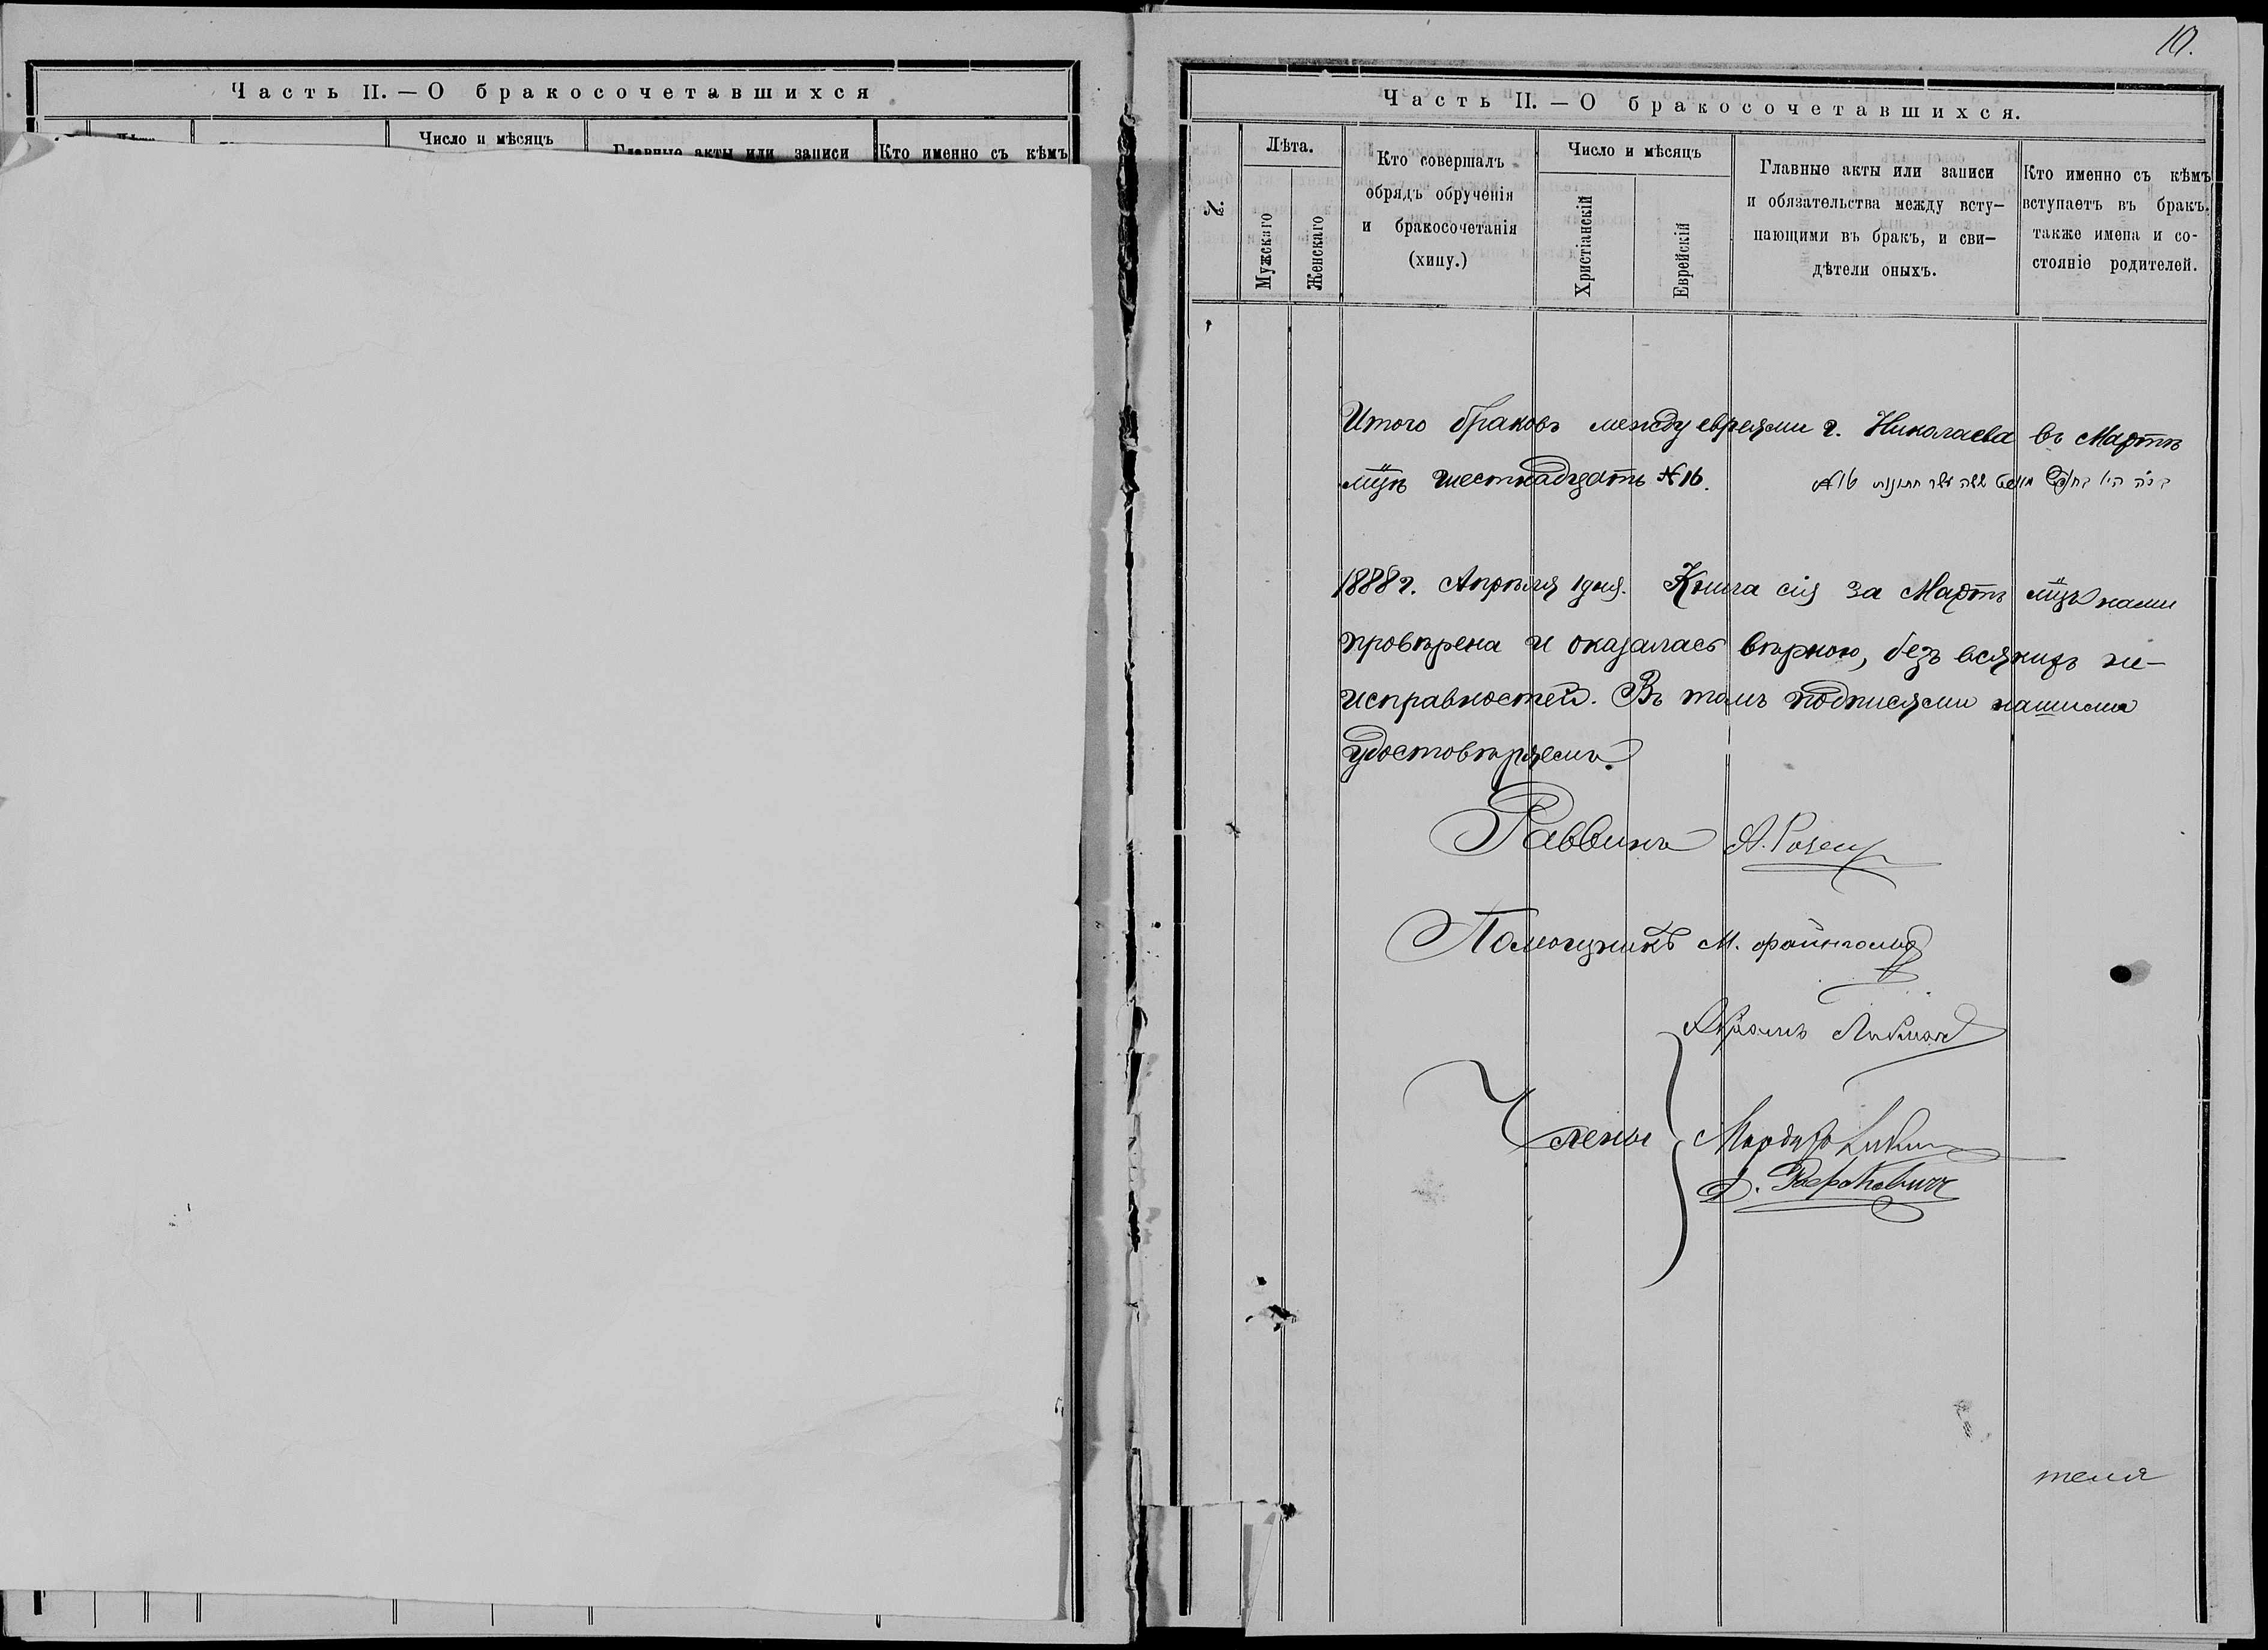 Часть II. — О бракосочетавшихся
Число и мѣсяцъ
Главные акты или записи
Кто именно съ кѣмъ
10.
Часть II. — О бракосочетавшихся.
№.
Лѣта.
Мужскаго
Женскаго
Кто совершалъ
обрядъ обрученія
и бракосочетанія
(хипу.)
Число и мѣсяцъ
Христіанскій
Еврейскій
Главные акты или записи
и обязательства между всту-
пающими въ бракъ, и сви-
дѣтели оныхъ.
Кто именно съ кѣмъ
вступаетъ въ бракъ.
также имена и со-
стояніе родителей.
Итого браковъ между евреями г. Николаева въ Мартѣ
мцѣ шестнадцать №16.
ששה עשר חתונות №16
1888 г. Апрѣля 1 дня. Книга сія за Мартъ мцъ нами
провѣрена и оказалась вѣрною, безъ всякихъ не-
исправностей. Въ томъ подписями нашими
удостовѣряемъ.
Раввинъ А. Розенъ
Помощникъ М.
Абрамъ
Члены
теля